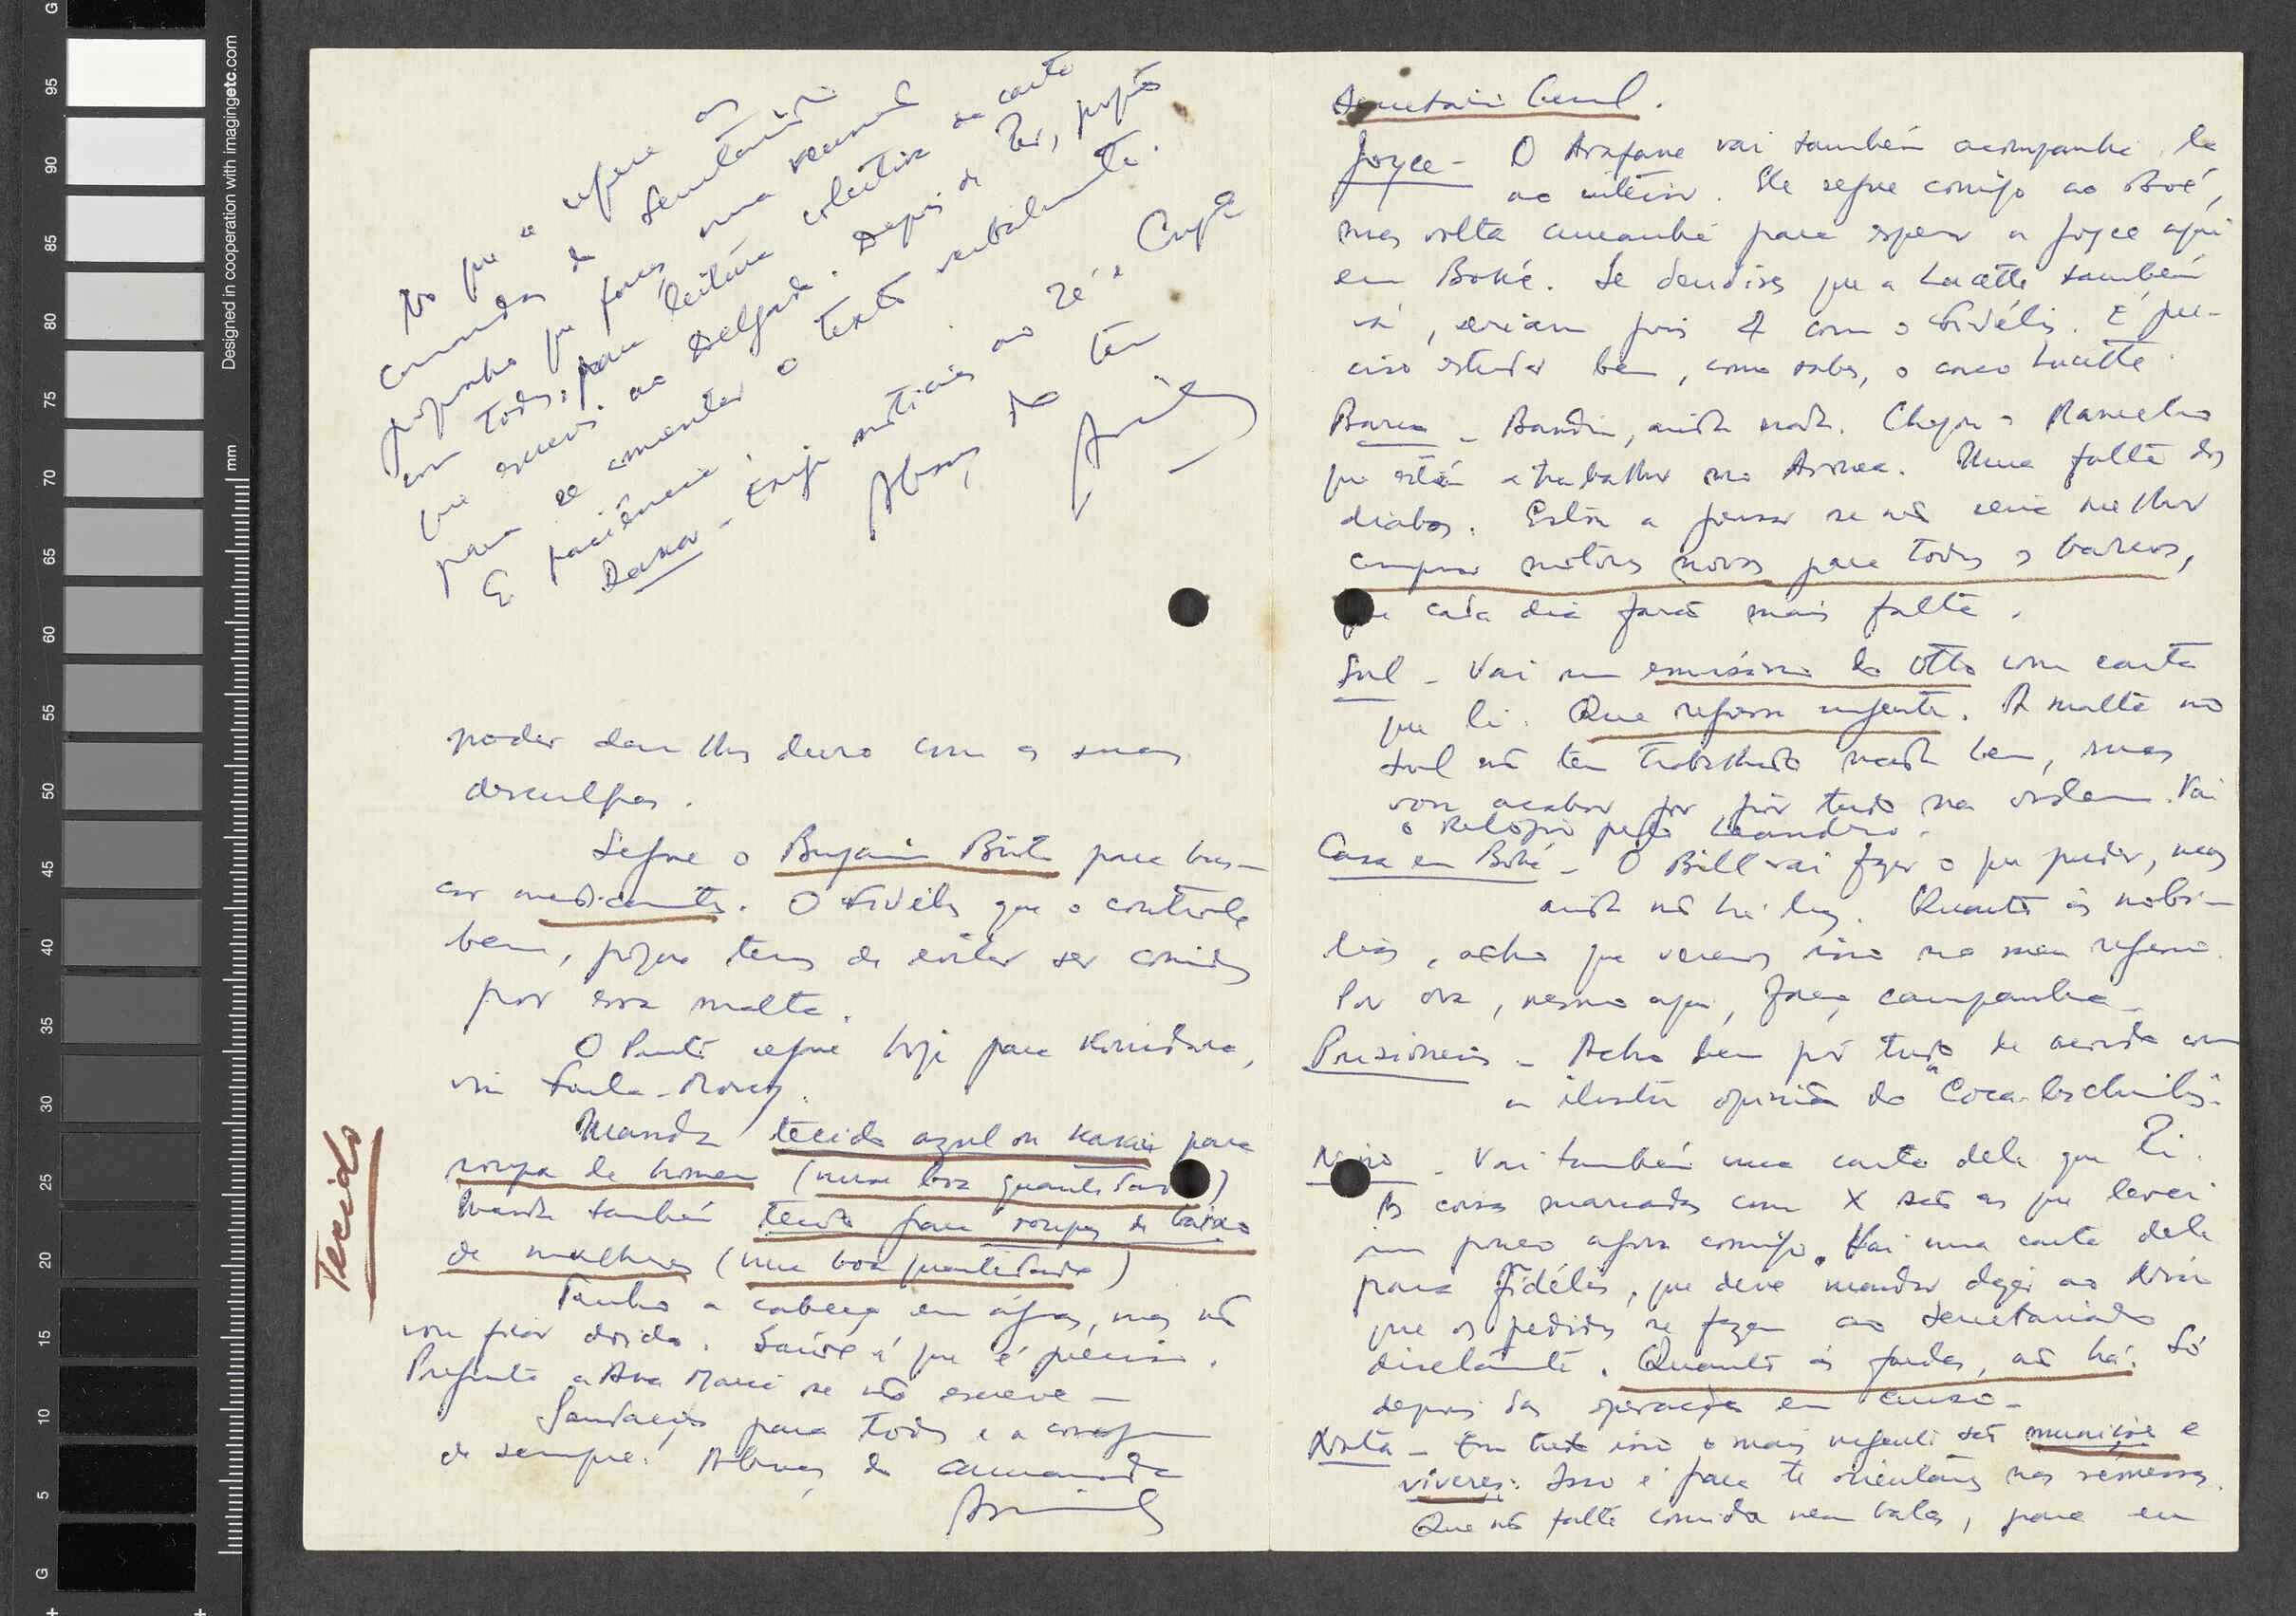 Secretaria Geral.
Joyce - O Arafane vai também acompanhá-la
ao interior. Ele segue comigo ao Boé,
mas volta amanhã para esperar a Joyce aqui
em Boké. Se decidires que a Lucette também
vá, seriam pois 4 com o Fidélis. É pre-
ciso estudar bem, como sabes, o caso Lucette.
Barcos - Bandim, ainda nada. Chegou o
que está a trabalhar no Arouca. Uma falta dos
diabos. Estou a pensar se não seria melhor
comprar motores novos para todos os barcos,
que cada dia farão mais falta.
Sul - Vai um emissário do Otto com carta
que li. Que regresse urgente. A malta no
Sul não tem trabalhado nada bem, mas
vou acabar por pôr tudo na ordem. Vai
o relógio pelo Leandro.
Casa em Boké - O Bill vai fazer o que puder, mas
ainda não há luz. Quanto às mobí-
lias, acho que veremos isso no meu regresso.
Por ora, mesmo aqui, faço campanha.
Prisioneiros - Acho bem pôr tudo de acordo com
a ilustre opinião do "Coca-
Nino - Vai também uma carta dele que li.
As coisas marcadas com X são as que levei
um pouco agora comigo. Vai uma carta dele
para Fidélis, que deve mandar dizer ao Nino
que os pedidos se fazem ao Secretariado
directamente. Quanto às fardas, não há. Só
depois das operações em curso.
Nota - Em tudo isso o mais urgente são munições e
víveres. Isso é para te orientares nas remessas.
Que não falte comida nem balas, para eu
poder dar-lhes duro com as suas
desculpas.
Segue o Benjamim Brito para bus-
car medicamentos. O Fidélis que o controle
bem, porque temos de evitar ser comidos
por essa malta.
O segue hoje para Koundara,
via Foula-Mory.
Manda tecido azul ou kakie para
roupa de homem (uma boa quantidade)
Manda também tecido para roupas de baixo
de mulheres (uma boa quantidade)
Tenho a cabeça em água, mas não
vou ficar doido. Saúde é que é preciso.
Pergunta a Ana Maria se não escreve -
Saudações para todos e a coragem
de sempre! Abraços do camarada
Amílcar
Tecido
No que se refere aos
camaradas do Secretariado
proponho que faças uma reunião
com todos, para leitura colectiva da carta
que escrevi ao Delgado. Depois de ler, propões
para se comentar o texto verbalmente.
E paciência.
Dakar - Exige notícias ao Zé e Cruz
Abraços do teu
Amílcar